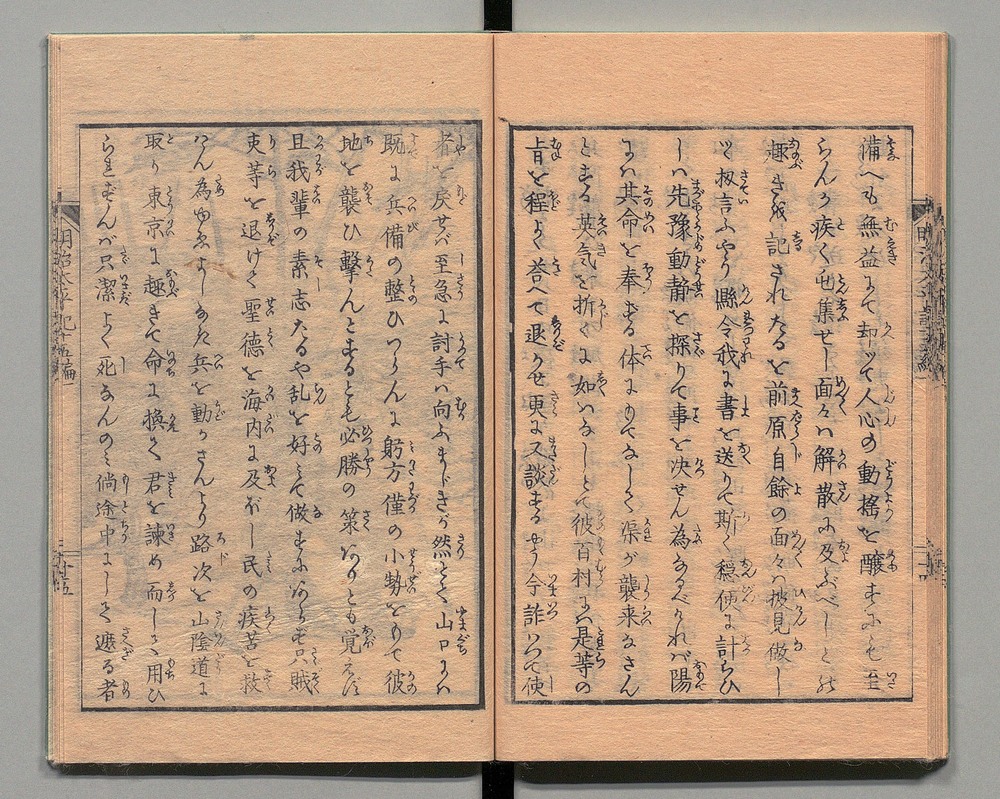 備へも無益にて却ツて人心の動揺を醸すにも至
らんか疾く屯集せし面々ハ解散に及ぶべしとの
趣きを記されたるを前原自餘の面々ハ披見做し
ツヽ扨言ふやう縣令我に書を送りて斯く穏便に計らひ
しハ先豫動静を探りて事を决せん為なるべけれバ陽
にハ其命を奉ずる体にもてなして渠が襲来なさん
とする英気を折くに如ハなしとて彼百村にハ是等の
旨を程よく荅へて退かせ更に又談ずるやう今詐いつて使
者を戻せバ至急に討手ハ向ふまじきが然とて山口にハ
既に兵備の整ひつらんに躬方僅の小勢をもて彼
地を襲ひ撃んとするとも必勝の策ありとも覚えず
且我輩の素志たるや乱を好みて做すにあらず只賊
吏等を退けて聖徳を海内に及ぼし民の疾苦を救
はん為ゆゑよしなた兵を動かさんより路次を山陰道に
取り東京に趣きて命に換て君を諫め而して用ひ
られずんバ只潔よく死なんのミ倘途中にして遮る者
明治太平記十五編
廿五